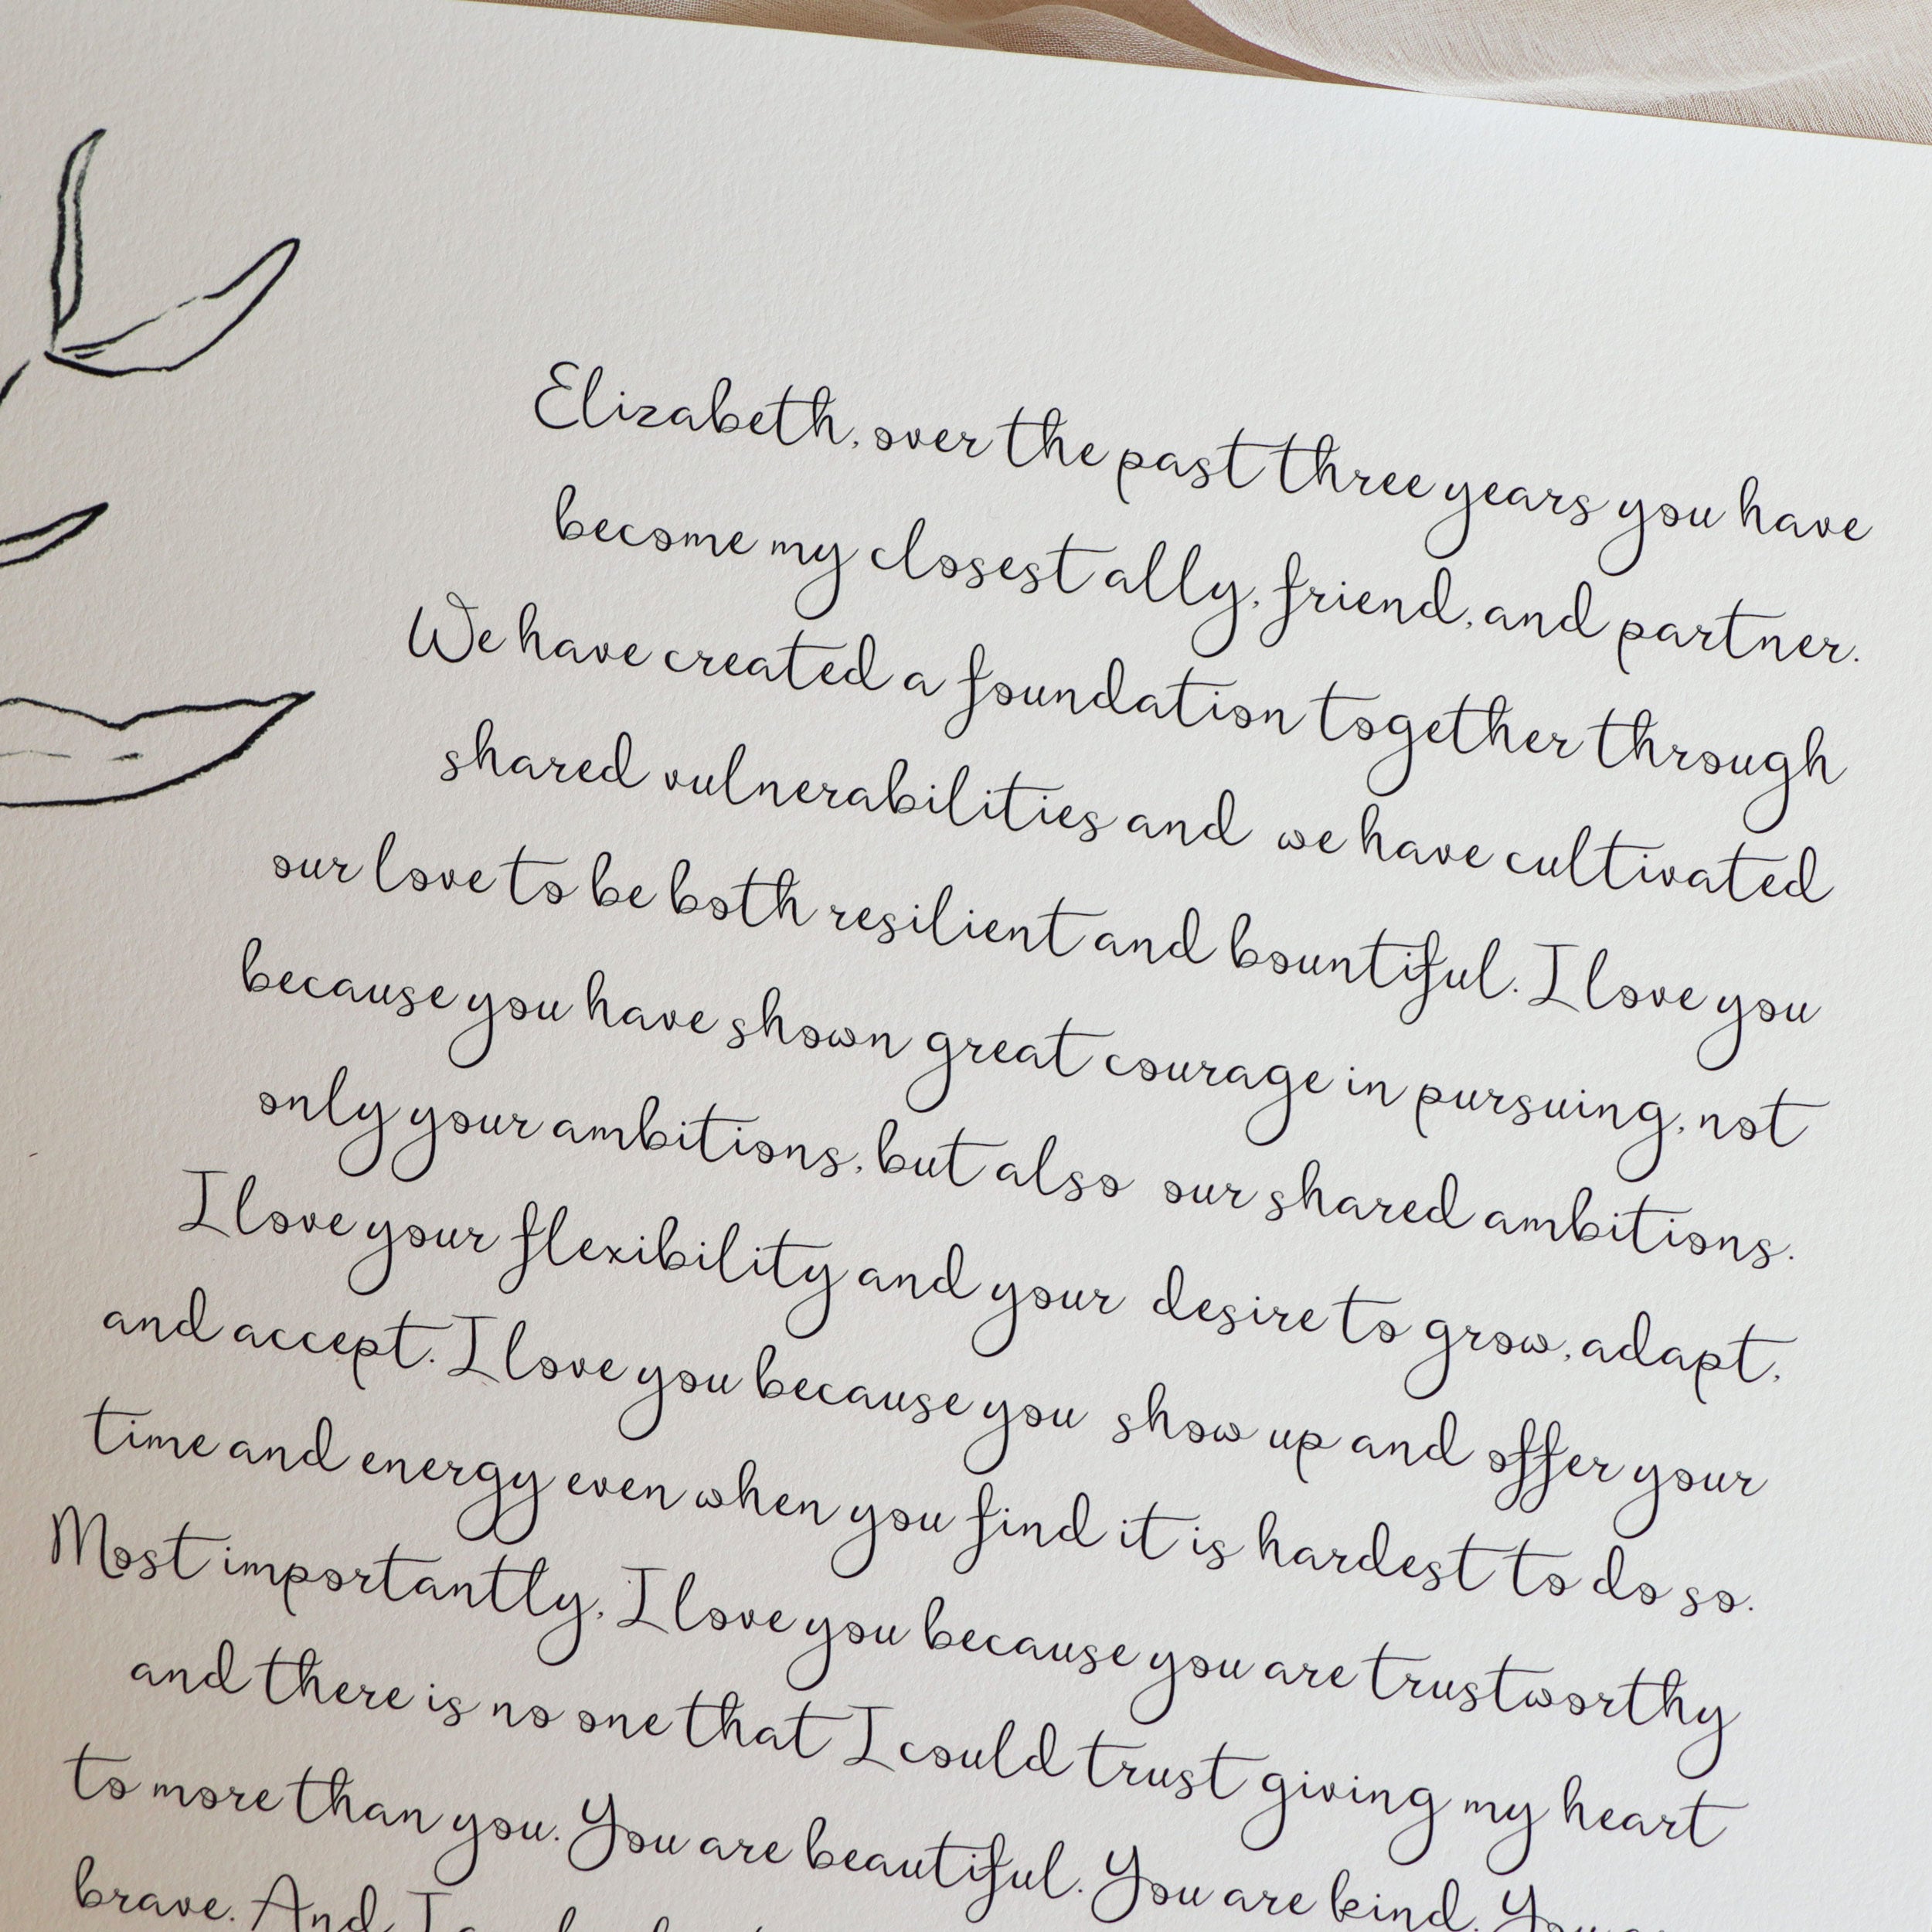 Elizabeth, over the past three years you have
become my closest ally, friend, and partner.
We have created a foundation together through
shared vulnerabilities and we have cultivated
our love to be both resilient and bountiful. I love you
because you have shown great courage in pursuing, not
only your ambitions, but also our shared ambitions.
I love your flexibility and your desire to grow, adapt,
and accept. I love you because you show up and offer your
time and energy even when you find it is hardest to do so.
Most importantly, I love you because you are trustworthy
and there is no one that I could trust giving my heart
to more than you. You are beautiful. You are kind. You
brave. And I